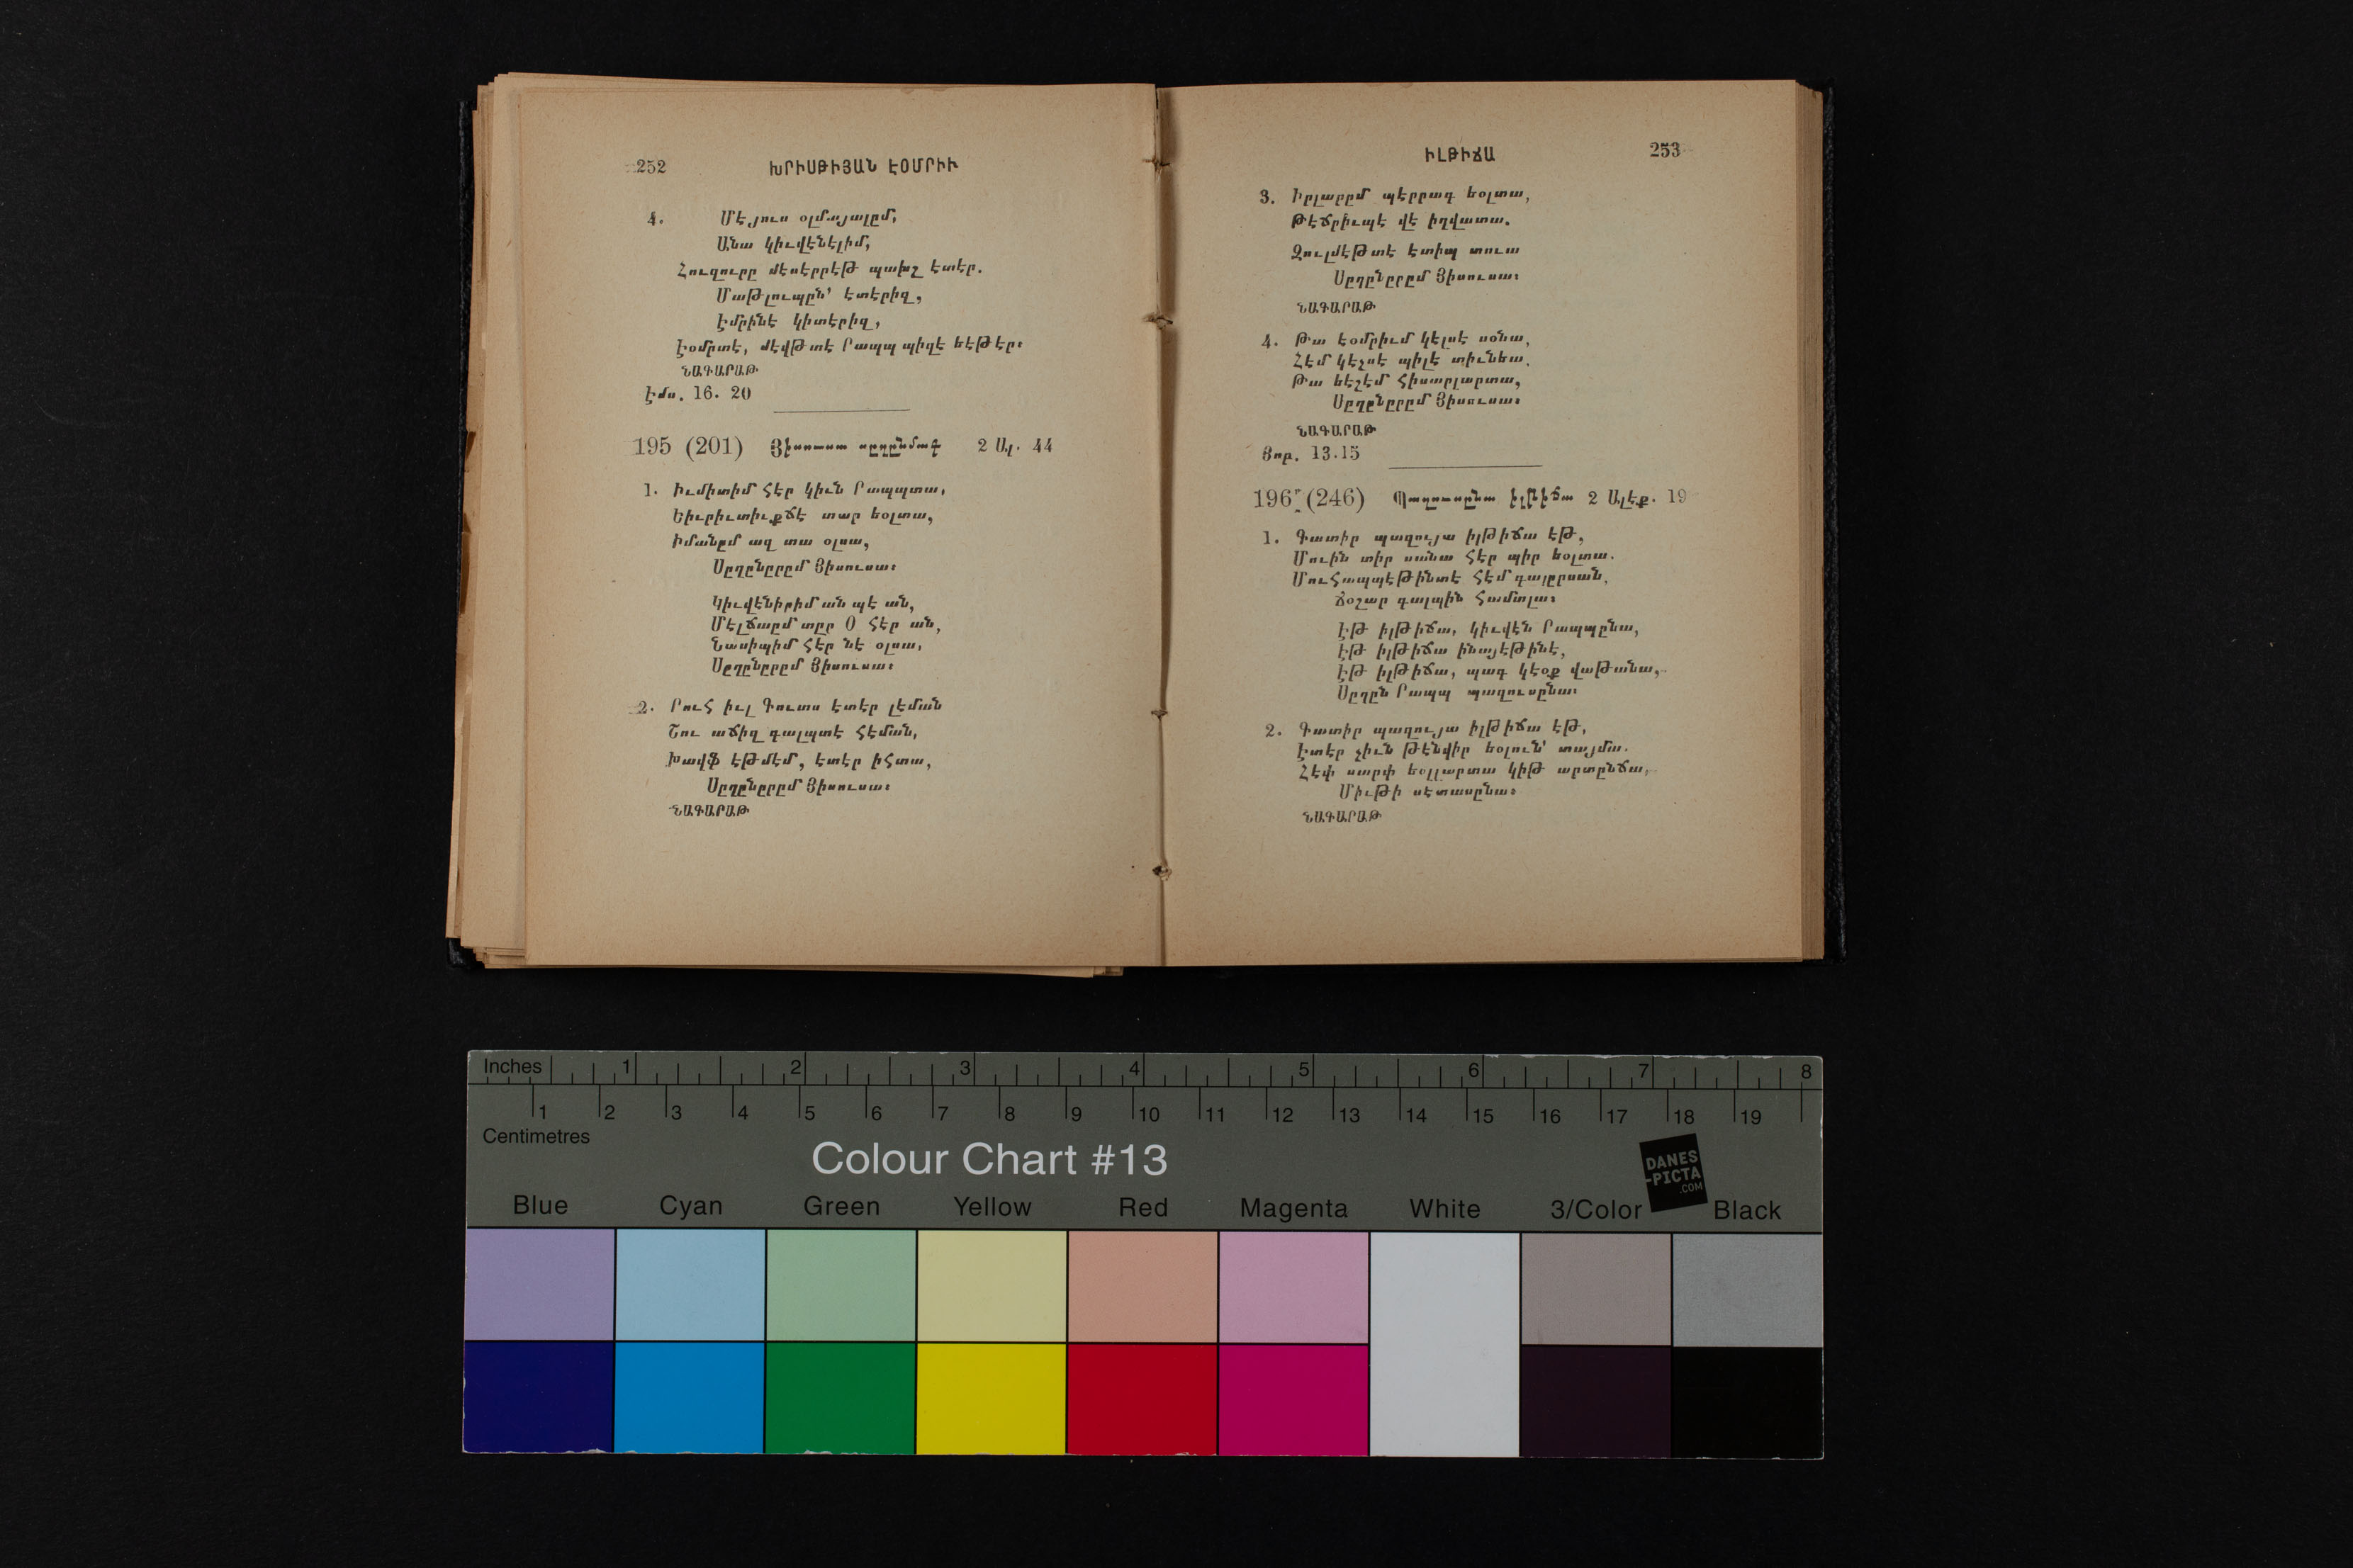 252 ԽՐԻՍԹԻՅԱՆ ԷՕՄՐԻՒ
4. Մէյուս օլմայալըմ,
Անա կիւվէնէլիմ,
Հուզուրը մէսէրրէթ պախշ էտէր.
Մաթլուպըն՛ էտէրիզ,
Էմրինէ կիտէրիզ,
Էօմրտէ, մէվթտէ Րապպ պիզէ եէթէր։
ՆԱԳԱՐԱԹ
Էմս. 16. 20
195 (201) Յիսուսա սըղընմագ 2 Ալ. 44
1. Իւմիտիմ հէր կիւն Րապպտա,
Եիւրիւտիւքճէ տար եօլտա,
Իմանըմ ազ տա օլսա,
Սըղընըրըմ Յիսուսա։
Կիւվէնիրիմ ան պէ ան,
Մէլճաըմ տըր Օ հէր ան,
Նասիպիմ հէր նէ օլսա,
Սըղընըրըմ Յիսուսա։
2. Րուհ իւլ Գուտս էտէր լէման
Շու աճիզ գալպտէ հէման,
Խավֆ էթմէմ, էտէր իհտա,
Սըղընըրըմ Յիսուսա։
ՆԱԳԱՐԱԹ
ԻԼԹԻՃԱ 253
3. Իրլարըմ պէրրագ եօլտա,
Թէճրիւպէ վէ իղվատա.
Զուլմէթտէ էտիպ տուա
Սըղընըրըմ Յիսուսա։
ՆԱԳԱՐԱԹ
4. Թա էօմրիւմ կէլսէ սօնա,
Հէմ կէչսէ պիլէ տիւնեա.
Թա եէշէմ հիսարլարտա,
Սըղընըրըմ Յիսուսա։
ՆԱԳԱՐԱԹ
Յոբ. 13.15
196 (246) Պաղուսընա իլթիճա 2 Ալէք. 19
1. Գատիր պազույա իլթիճա էթ,
Մուին տիր սանա հէր պիր եօլտա.
Մուհապպէթինտէ հէմ գալըրսան,
Ճօշար գալպին համտլա։
Էթ իլթիճա, կիւվէն Րապպընա,
Էթ իլթիճա ինայէթինէ,
Էթ իլթիճա, պագ կէօք վաթանա,
Սըղըն Րապպ պազուսընա։
2. Գատիր պազույա իլթիճա էթ,
Էտէր չիւն թէնվիր եօլուն՛ տայմա.
Հէփ սարփ եօլլարտա կիթ արտընճա,
Միւթի սէտասընա։
ՆԱԳԱՐԱԹ
Inches 1 2 3 4 5 6 7 8
1 2 3 4 5 6 7 8 9 10 11 12 13 14 15 16 17 18 19
Centimetres
Colour Chart #13
DANES
-PICTA
.COM
Blue Cyan Green Yellow Red Magenta White 3/Color Black